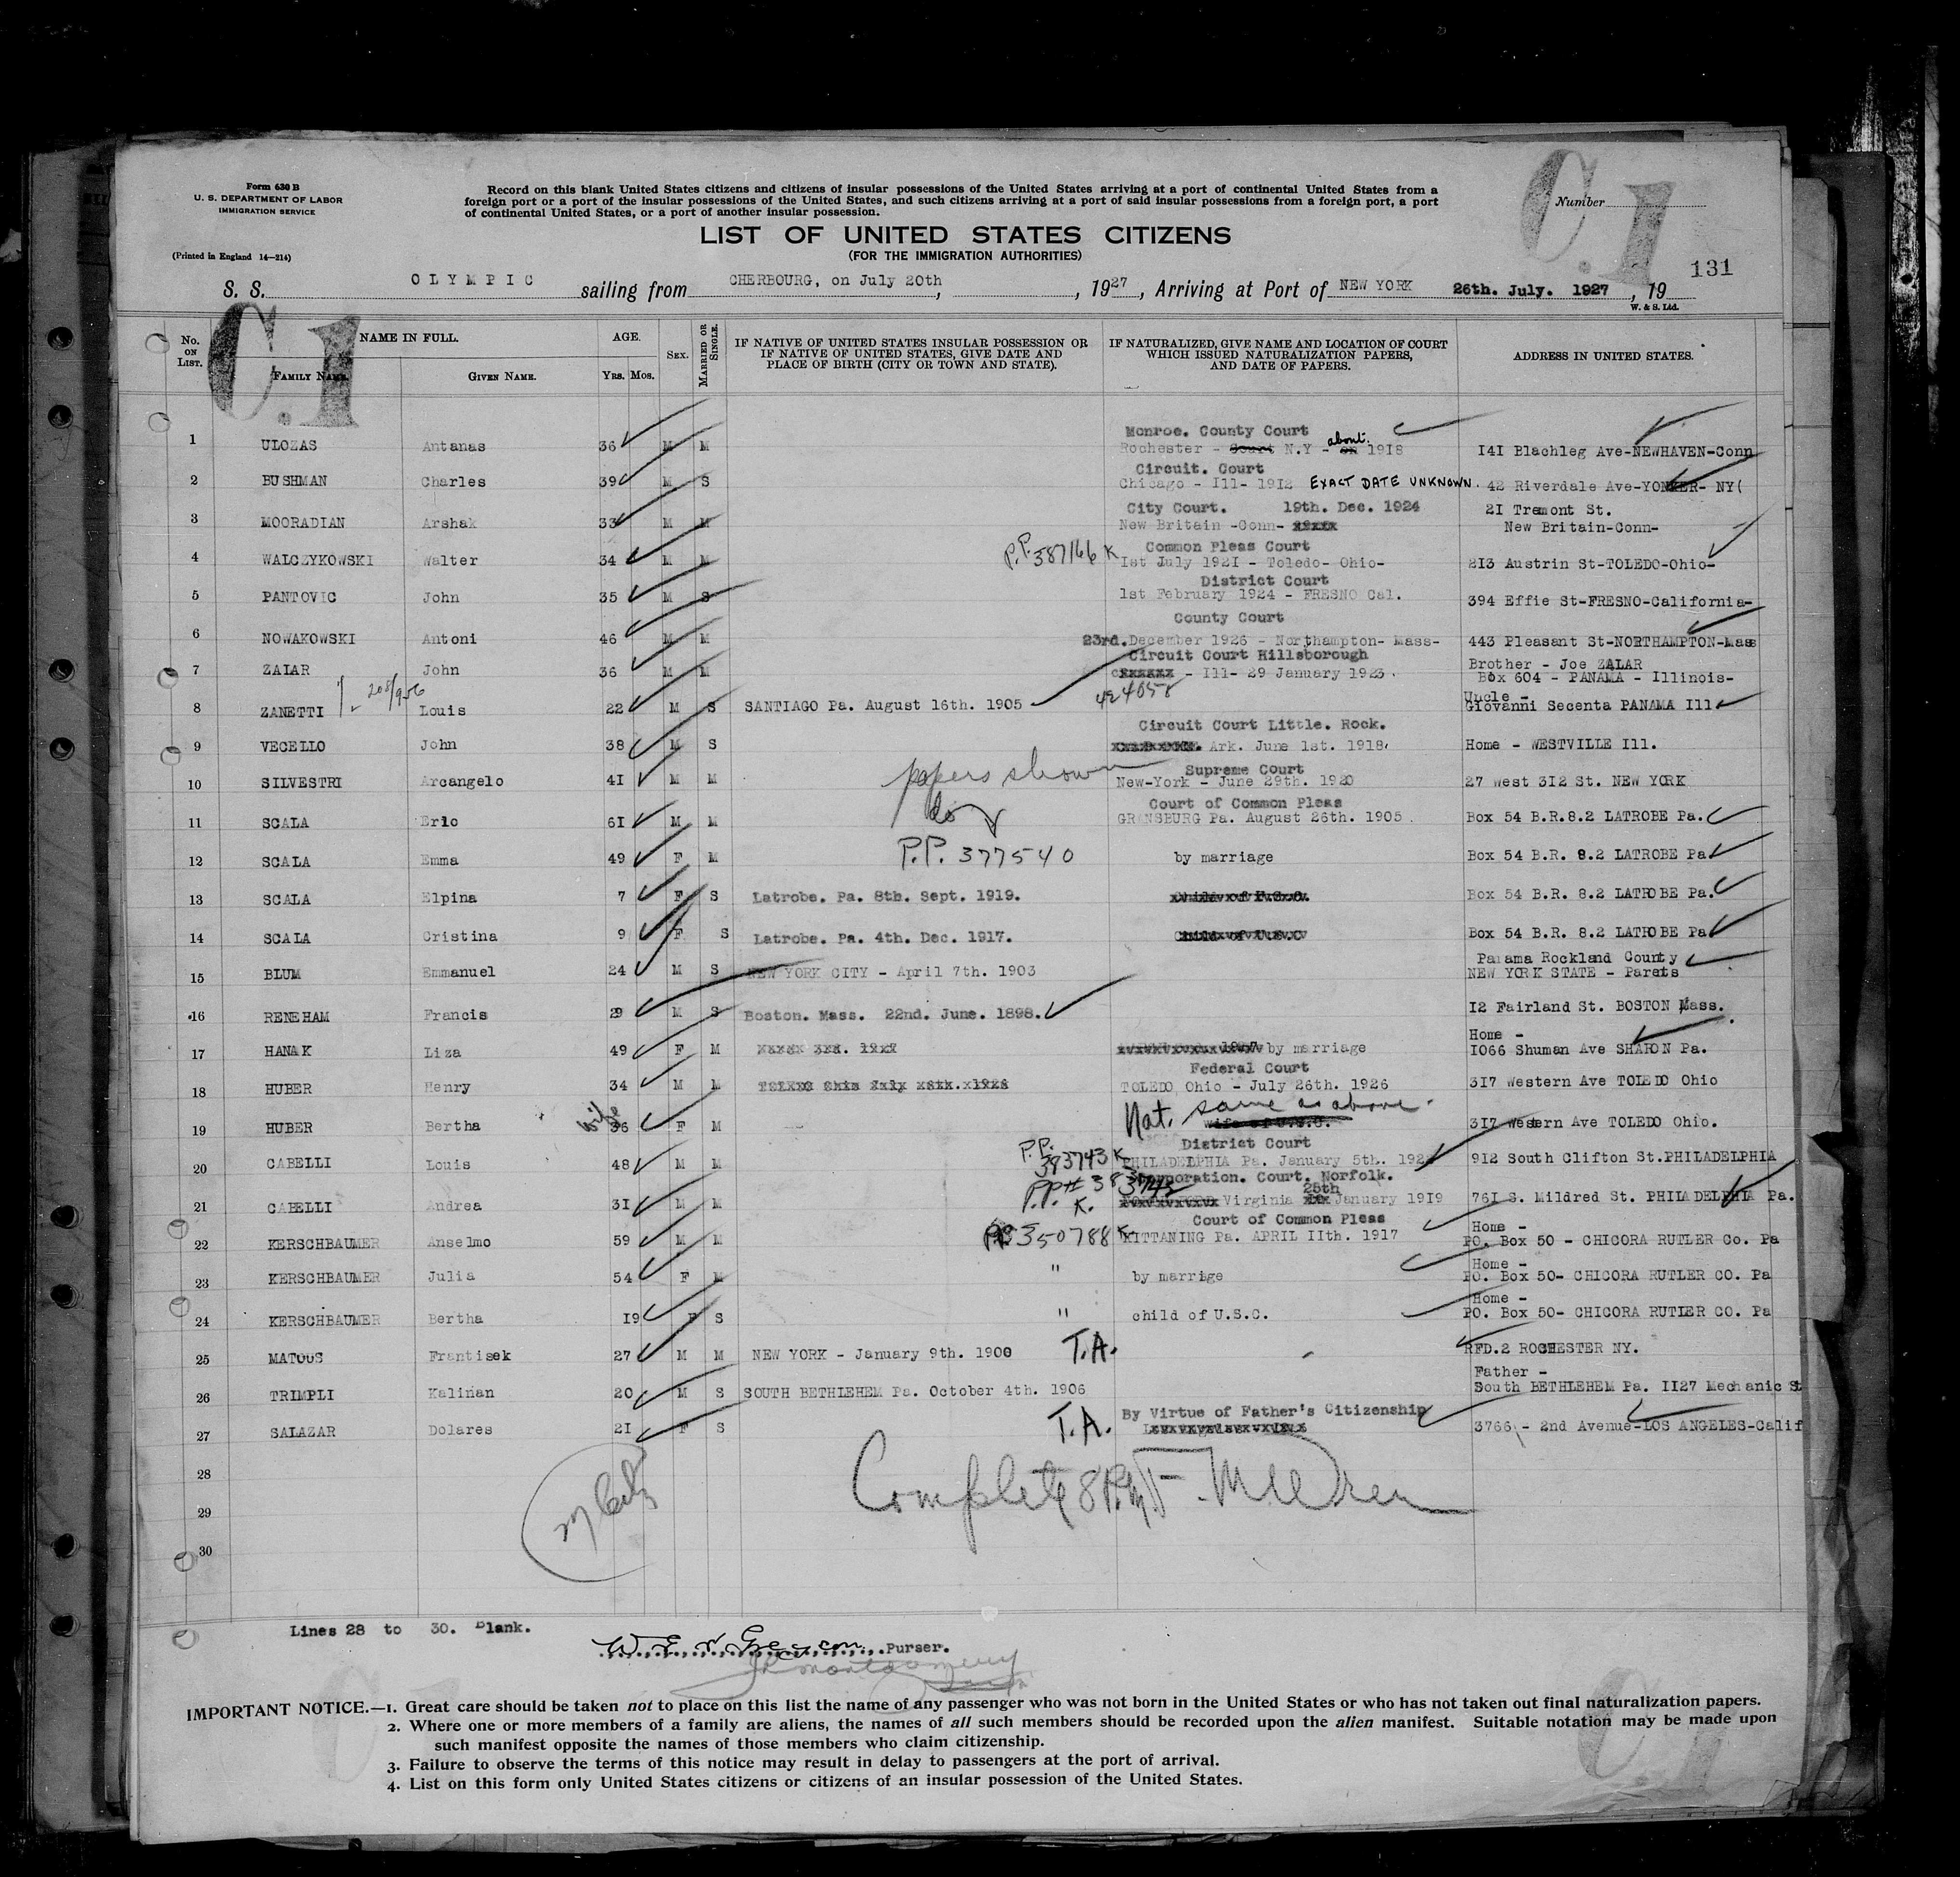 Form 630 B
U. S. DEPARTMENT OF LABOR
IMMIGRATION SERVICE
(Printed in England 14—214)
Record on this blank United States citizens and citizens of insular possessions of the United States arriving at a port of continental United States from a
foreign port or a port of the insular possessions of the United States, and such citizens arriving at a port of said insular possessions from a foreign port, a port
of continental United States, or a port of another insular possession.
C.1
Number
LIST OF UNITED STATES CITIZENS
(FOR THE IMMIGRATION AUTHORITIES)
131
S. S. OLYMPIC sailing from CHERBOURG, on July 20th, , 1927, Arriving at Port of NEW YORK 26th. July. 1927, 19
W. & S. Ltd.
C.1
No. ON LIST. NAME IN FULL. FAMILY NAME. GIVEN NAME. AGE. YRS. MOS. SEX. MARRIED OR SINGLE. IF NATIVE OF UNITED STATES INSULAR POSSESSION OR IF NATIVE OF UNITED STATES, GIVE DATE AND PLACE OF BIRTH (CITY OR TOWN AND STATE). IF NATURALIZED, GIVE NAME AND LOCATION OF COURT WHICH ISSUED NATURALIZATION PAPERS, AND DATE OF PAPERS. ADDRESS IN UNITED STATES.
Monroe. County Court
1 ULOZAS Antanas 36 M M Rochester - Court N.Y - on about. 1918 141 Blachleg Ave-NEWHAVEN-Conn
Circuit. Court
2 BUSHMAN Charles 39 M S Chicago - Ill- 1912 EXACT DATE UNKNOWN. 42 Riverdale Ave-YONKER- NY(
City Court. 19th. Dec. 1924 21 Tremont St.
3 MOORADIAN Arshak 33 M M New Britain -Conn- New Britain-Conn-
Common Pleas Court
4 WALCZYKOWSKI Walter 34 M M P.P. 387166 K 1st July 1921 - Toledo- Ohio- 213 Austrin St-TOLEDO-Ohio-
District Court
5 PANTOVIC John 35 M S 1st February 1924 - FRESNO Cal. 394 Effie St-FRESNO-California-
County Court
6 NOWAKOWSKI Antoni 46 M M 23rd. December 1926 - Northampton- Mass- 443 Pleasant St-NORTHAMPTON-Mass
Circuit Court Hillsborough Brother - Joe ZALAR
7 ZALAR John 36 M M - Ill- 29 January 1923. Box 604 - PANAMA - Illinois-
424058 Uncle -
8 ZANETTI Louis 22 M S SANTIAGO Pa. August 16th. 1905 Giovanni Secenta PANAMA Ill
Circuit Court Little. Rock.
9 VECELLO John 38 M S Ark. June 1st. 1918. Home - WESTVILLE Ill.
papers shown Supreme Court
10 SILVESTRI Arcangelo 41 M M New-York - June 29th. 1920 27 West 312 St. NEW YORK
do Court of Common Pleas
11 SCALA Eric 61 M M GRENSBURG Pa. August 26th. 1905. Box 54 B.R.8.2 LATROBE Pa.
12 SCALA Emma 49 F M P.P. 377540 by marriage Box 54 B.R. 8.2 LATROBE Pa
13 SCALA Elpina 7 F S Latrobe. Pa. 8th. Sept. 1919. Box 54 B.R. 8.2 LATROBE Pa.
14 SCALA Cristina 9 F S Latrobe. Pa. 4th. Dec. 1917. Box 54 B.R. 8.2 LATROBE Pa
Panama Rockland County
15 BLUM Emmanuel 24 M S NEW YORK CITY - April 7th. 1903 NEW YORK STATE - Parets
16 RENEHAM Francis 29 M S Boston. Mass. 22nd. June. 1898. 12 Fairland St. BOSTON Mass.
Home -
17 HANAK Liza 49 F M by marriage 1066 Shuman Ave SHARON Pa.
Federal Court
18 HUBER Henry 34 M M TOLEDO Ohio - July 26th. 1926 317 Western Ave TOLEDO Ohio
Nat. same as above.
19 HUBER Bertha wife 36 F M wife of U.S.C. 317 Western Ave TOLEDO Ohio.
District Court
20 CABELLI Louis 48 M M P.P. 383743 K PHILADELPHIA Pa. January 5th. 912 South Clifton St.PHILADELPHIA
Corporation. Court. Norfolk.
21 CABELLI Andrea 31 M M P.P.# 383742 K. Virginia 25th January 1919 761 S. Mildred St. PHILADELPHIA Pa.
Court of Common Pleas Home -
22 KERSCHBAUMER Anselmo 59 M M PP 350788 K KITTANING Pa. APRIL 11th. 1917 PO. Box 50 - CHICORA RUTLER Co. Pa
Home -
23 KERSCHBAUMER Julia 54 F M " by marrige PO. Box 50- CHICORA RUTLER CO. Pa
Home -
24 KERSCHBAUMER Bertha 19 F S " child of U.S.C. PO. Box 50- CHICORA RUTLER CO. Pa
25 MATOUS Frantisek 27 M M NEW YORK - January 9th. 1900 T.A. RFD.2 ROCHESTER NY.
Father -
26 TRIMPLI Kalinan 20 M S SOUTH BETHLEHEM Pa. October 4th. 1906 South BETHLEHEM Pa. 1127 Mechanic St
By Virtue of Father's Citizenship
27 SALAZAR Dolares 21 F S T.A. 3766 - 2nd Avenue-LOS ANGELES-Calif
28
29
30
Complete
Lines 28 to 30. Blank.
Purser.
Montgomery
IMPORTANT NOTICE.—1. Great care should be taken not to place on this list the name of any passenger who was not born in the United States or who has not taken out final naturalization papers.
2. Where one or more members of a family are aliens, the names of all such members should be recorded upon the alien manifest. Suitable notation may be made upon
such manifest opposite the names of those members who claim citizenship.
3. Failure to observe the terms of this notice may result in delay to passengers at the port of arrival.
4. List on this form only United States citizens or citizens of an insular possession of the United States.